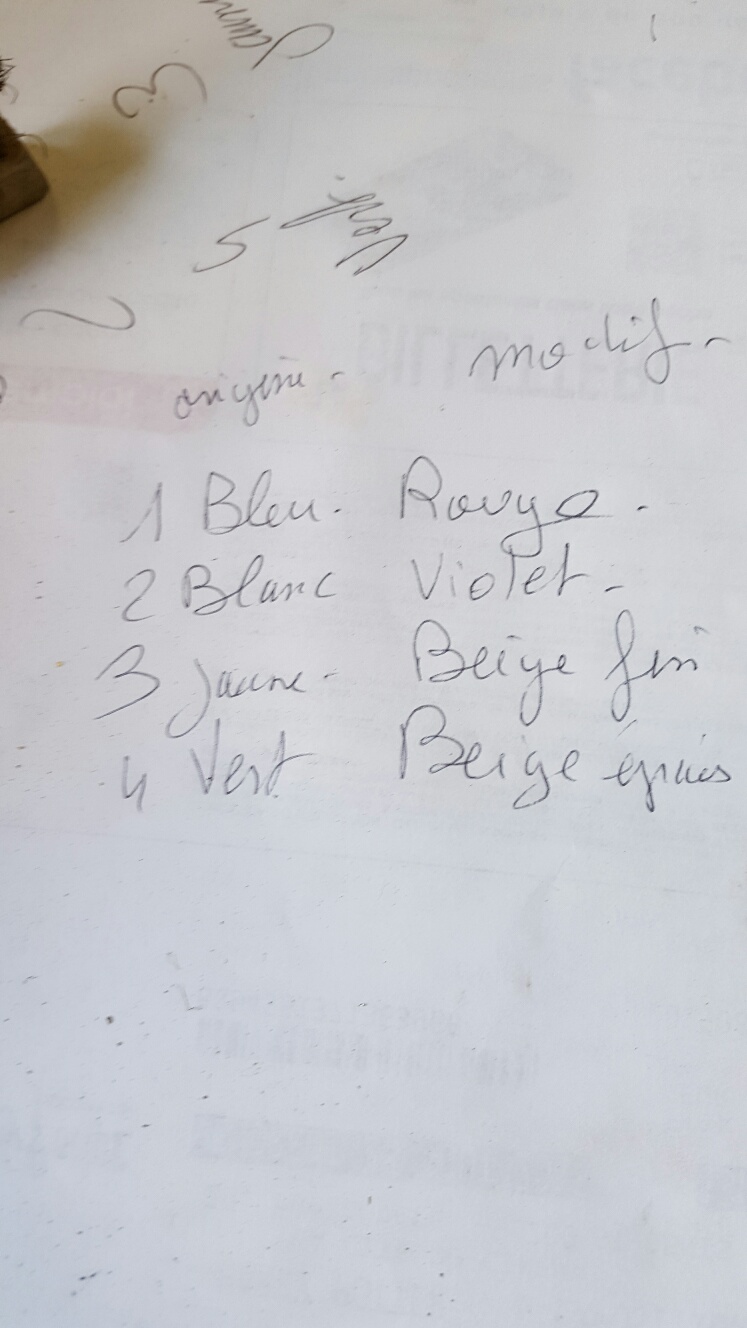 origine - modif -
1 Bleu. Rouge.
2 Blanc Violet -
3 jaune - Beige fin
4 Vert Beige épais